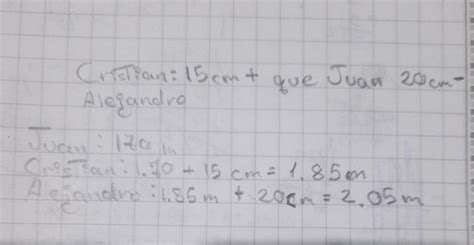 Cristian: 15cm + que Juan 20cm-
Alejandro
Juan: 170 m
Cristian: 1.70 + 15 cm = 1.85m
Alejandro: 1.85 m + 20cm = 2.05 m